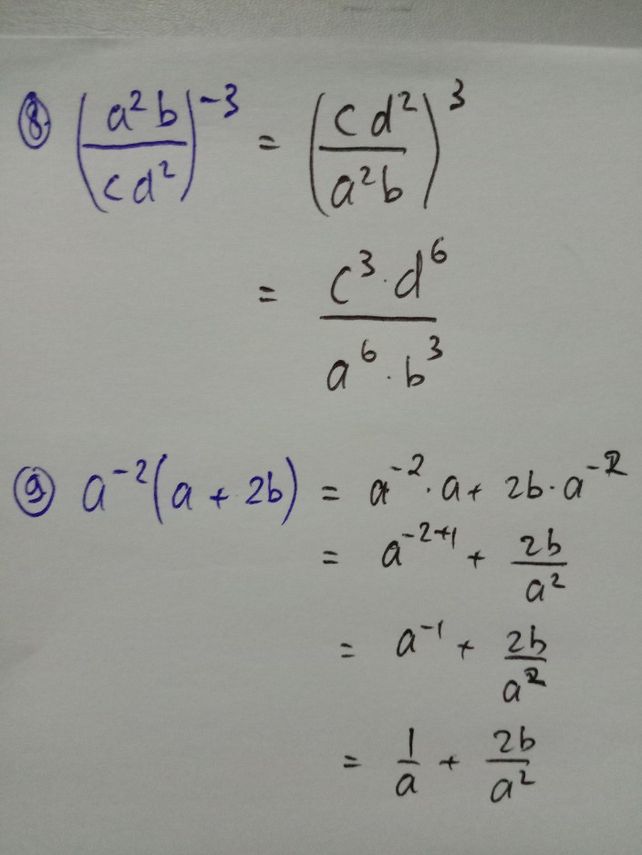 ⑧ (a²b/cd²)⁻³ = (cd²/a²b)³
= c³·d⁶/a⁶·b³
⑨ a⁻²(a + 2b) = a⁻²·a + 2b·a⁻²
= a⁻²⁺¹ + 2b/a²
= a⁻¹ + 2b/a²
= 1/a + 2b/a²